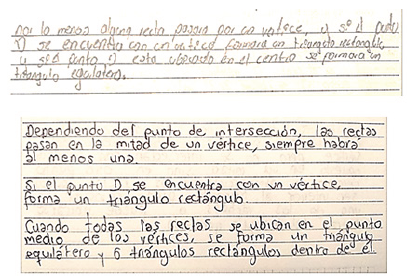 por lo menos alguna recta pasara por un vertice, y si el punto
D se encuentra con un vertice formara un triangulo rectangulo
y si el punto D esta ubicado en el centro se formara un
triangulo equilatero.
Dependiendo del punto de intersección, las rectas
pasan en la mitad de un vértice, siempre habrá
al menos una.
Si el punto D se encuentra con un vértice,
forma un triángulo rectángulo.
Cuando todas las rectas se ubican en el punto
medio de los vértices, se forma un triángulo
equilátero y 6 triángulos rectángulos dentro de el